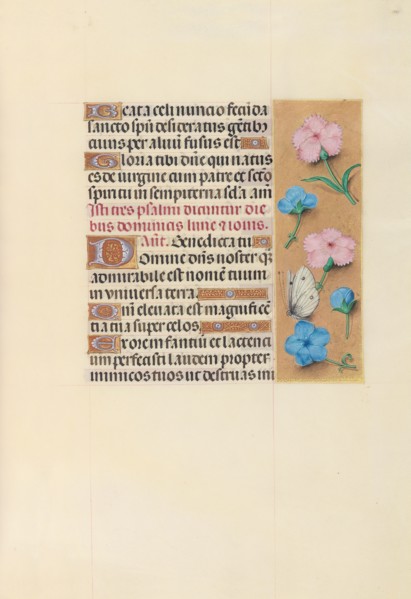 Beata celi nuncio fecūda
sancto spū desideratus gētibꝫ
cuius per aluū fusus est
Gloria tibi dñe qui natus
es de virgine cum patre et scto
spiritu in sempiterna scła am̄
Isti tres psalmi dicuntur die
bus dominicis lune ⁊ iovis.
Ant. Benedicta tu
Domine dñs noster q̄
admirabile est nomē tuum
in universa terra.
Qm̄ elevata est magnificē
tia tua super celos
Ex ore infantiū et lactenti
um perfecisti laudem propter
inimicos tuos ut destruas ini